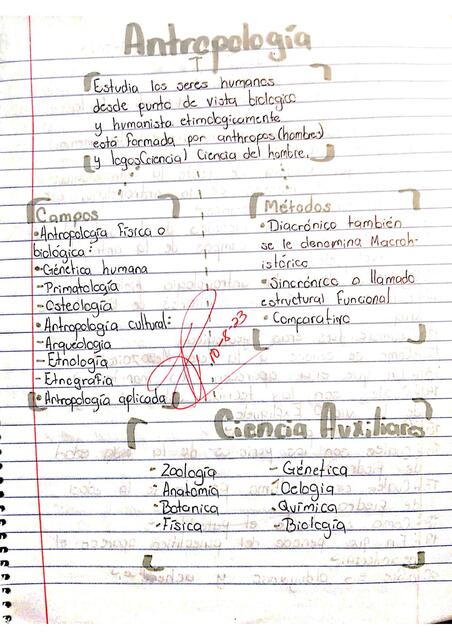 Antropología
Estudia los seres humanos
desde punto de vista biologico
y humanista etimologicamente
está formada por anthropos(hombre)
y logos(ciencia) Ciencia del hombre.
Campos
•Antropología Física o
biológica:
-Génetica humana
-Primatología
-Osteología
•Antropología cultural:
-Arqueología
-Etnología
-Etnografia
•Antropología aplicada
Métodos
•Diacrónico también
se le denomina Macroh-
istórico
•Sincrónico o llamado
estructural Funcional
•Comparativo
10-8-23
Ciencia Auxiliares
•Zoología
•Anatomía
•Botanica
•Física
-Génetica
•Química
-Biología